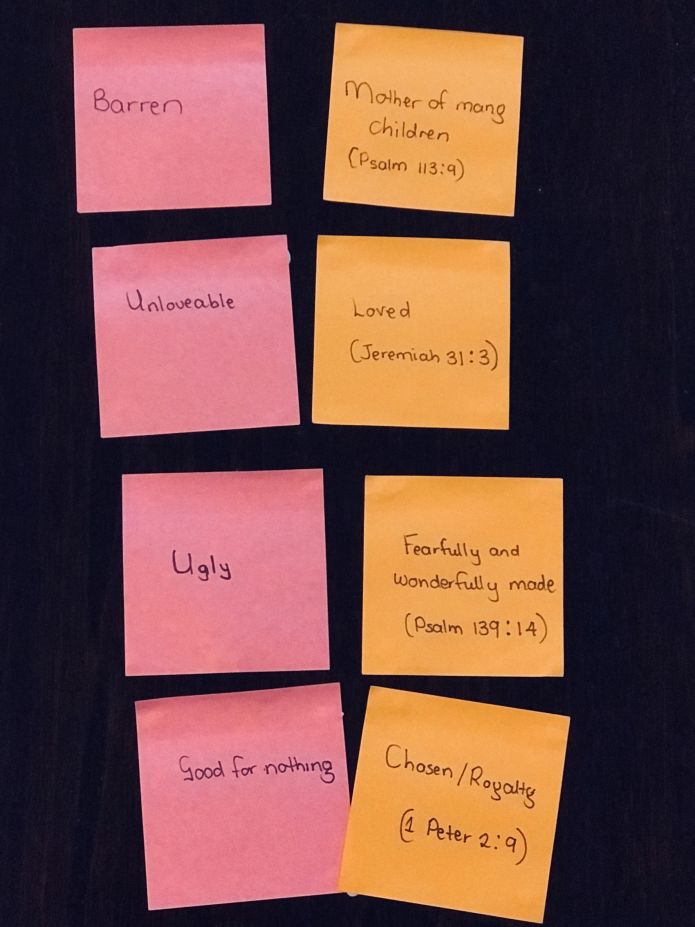 Barren
Mother of many
children
(Psalm 113:9)
Unloveable
Loved
(Jeremiah 31:3)
Ugly
Fearfully and
wonderfully made
(Psalm 139:14)
Good for nothing
Chosen/Royalty
(1 Peter 2:9)